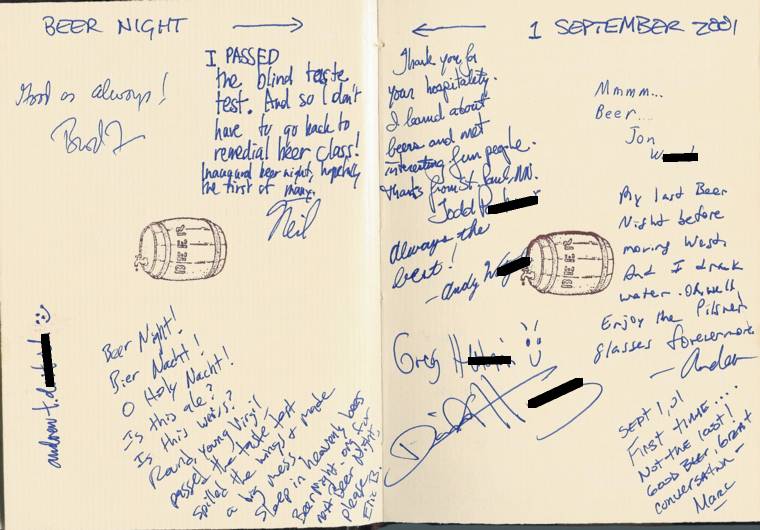 BEER NIGHT
Good as always!
I PASSED
the blind taste
test. And so I don't
have to go back to
remedial beer class!
Inaugural beer night, hopefully
the first of many.
Neil
BEER
andrew t.
Beer Night!
Bier Nacht!
O Holy Nacht!
Is this ale?
Is this weiss?
Round, Young Virgil
passed the taste test
spilled the wings & made
a big mess
Sleep in heavenly beer
Beer Night. org for
next Beer Night
please
Eric B.
1 SEPTEMBER 2001
Thank you for
your hospitality.
I learned about
beers and met
interesting fun people.
Thanks from St Paul, MN.
Todd
Always the
best!
- Andy
BEER
Greg
Mmmm...
Beer...
Jon
My last Beer
Night before
moving West.
And I drank
water. Oh well
Enjoy the Pilsner
glasses forevermore.
SEPT 1, 01
FIRST TIME....
NOT THE LAST!
GOOD BEER, Great
conversation -
Marc